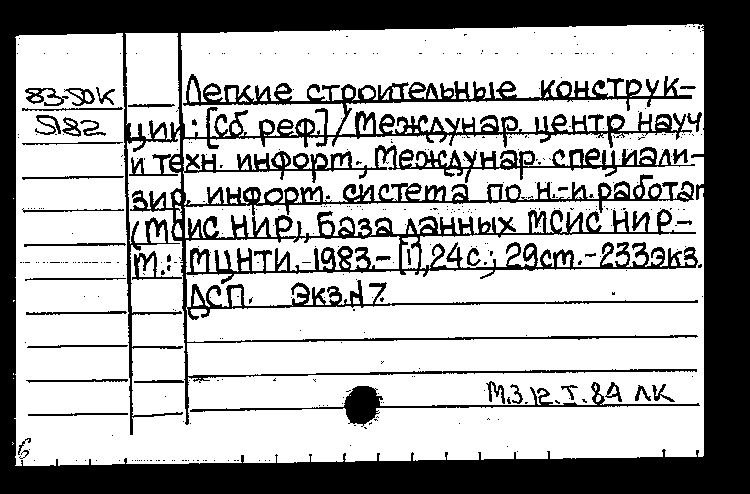 83-50К Легкие строительные конструк-
5182 ции: [Сб. реф.] / Междунар. центр науч
и техн. информ., Междунар. специали-
зир. информ. система по н.-и. работам
(МСИС НИР), База данных МСИС НИР.-
М.: МЦНТИ, 1983.- [1], 24 с.; 29 см.- 233 экз.
ДСП. Экз.N 7.
М.З. 12.I.84 ЛК
6